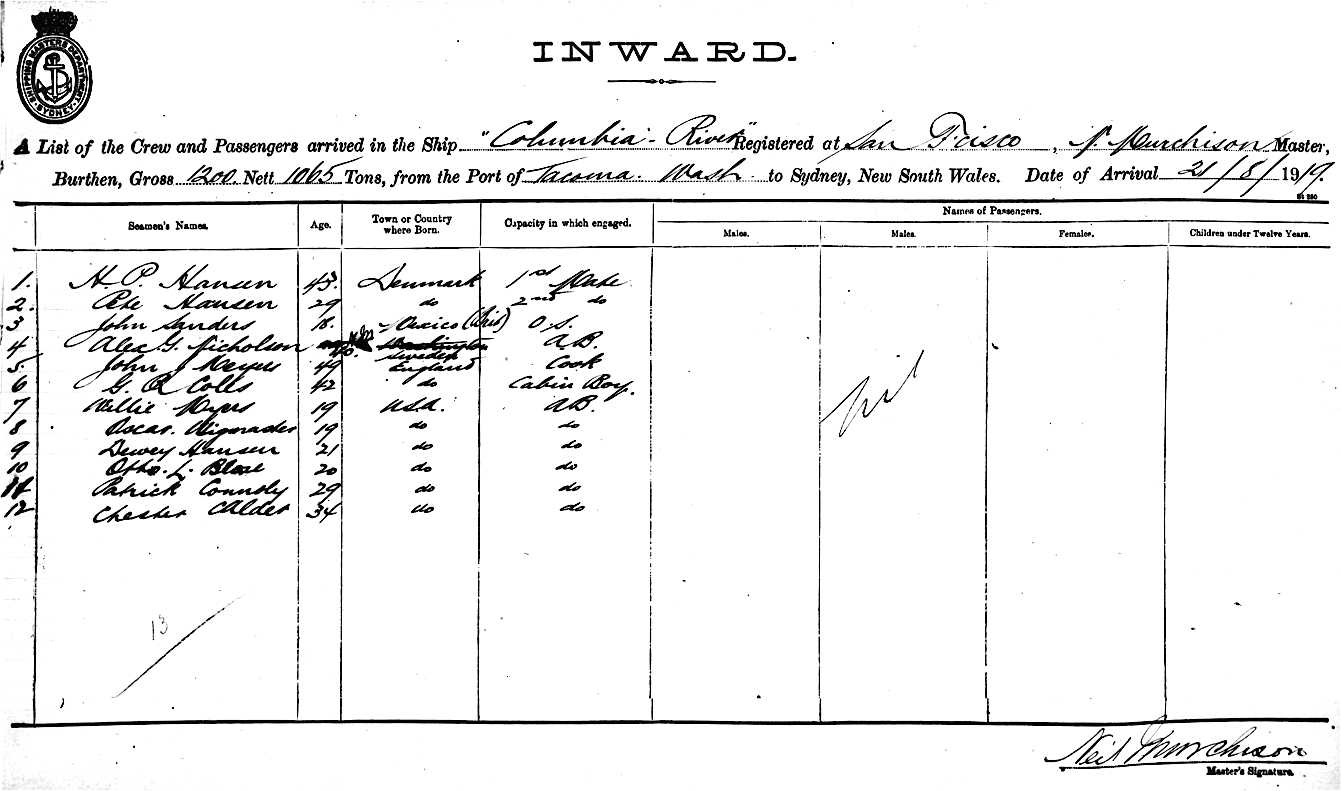 SHIPPING MASTERS DEPARTMENT
SYDNEY
INWARD.
A List of the Crew and Passengers arrived in the Ship "Columbia - River" Registered at San Fcisco, N. Murchison Master,
Burthen, Gross 1200 Nett 1065 Tons, from the Port of Tacoma. Wash to Sydney, New South Wales. Date of Arrival 21/8/1919.
Seamen's Names. Age. Town or Country where Born. Capacity in which engaged. Names of Passengers.
Males. Males. Females. Children under Twelve Years.
1. H. P. Hansen 43. Denmark 1st Mate
2. Pete Hansen 29 do 2nd do
3 John Sanders 18. Mexico O.S.
4 Alex G. Nicholson 40. Sweden A.B.
5. John J Meyers 49 England Cook
6 G. R Colls 42 do Cabin Boy.
7 Willie Myers 19 U.S.A. A.B.
8 Oscar 19 do do
9 Dewey Hansen 21 do do
10 Otho. L. 20 do do
11 Patrick Connoly 29 do do
12 Chester 34 do do
nil
13
Neil Murchison
Master's Signature.